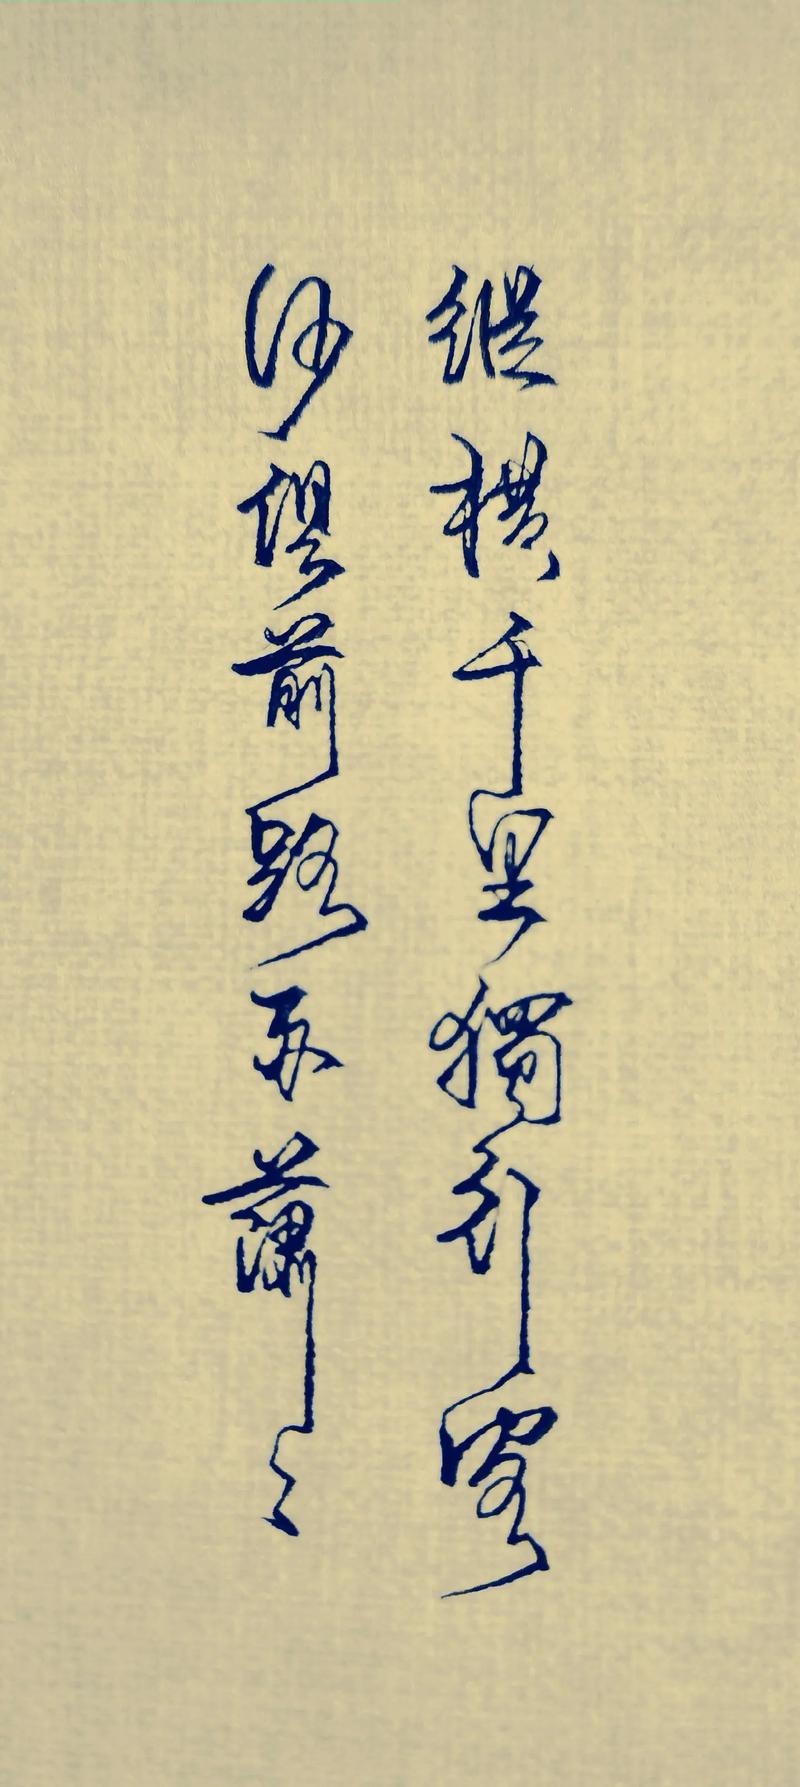 縱橫千里獨行客
何懼前路雨蕭々